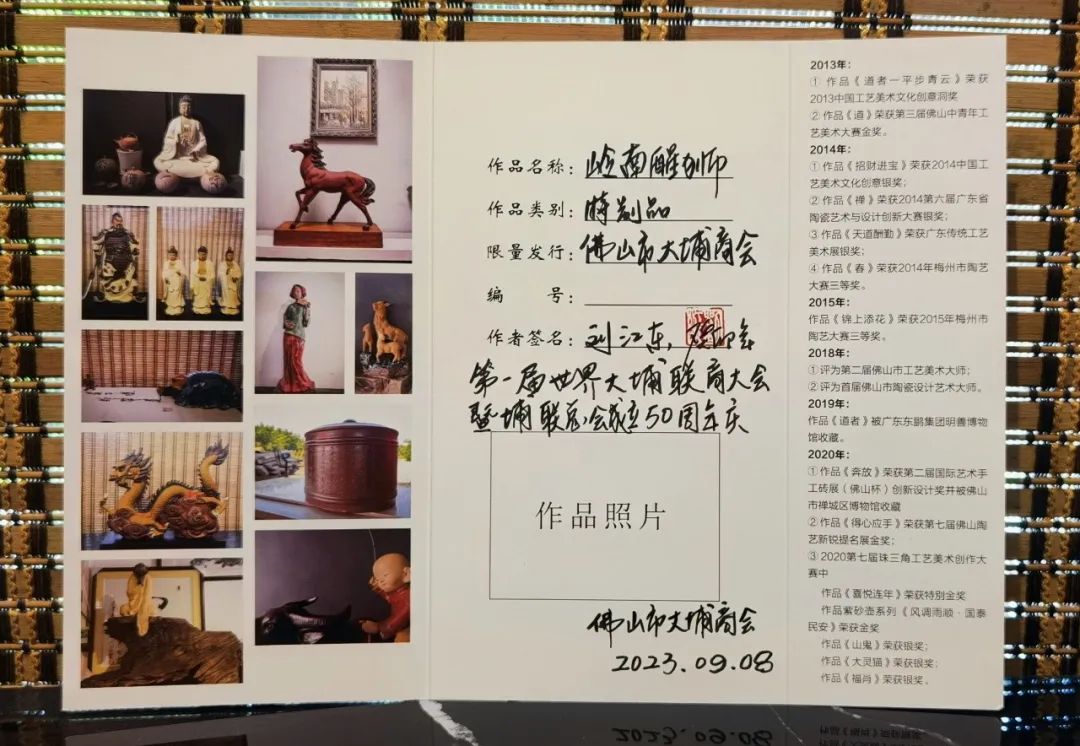 作品名称：岭南醒狮
作品类别：
限量发行：佛山市大埔商会
编　　号：
作者签名：刘江东，
第一届世界大埔联商大会
暨埔联总会成立50周年庆
作品照片
佛山市大埔商会
2023.09.08
2013年：
① 作品《道者一平步青云》荣获
2013中国工艺美术文化创意洞奖
② 作品《道》荣获第三届佛山中青年工
艺美术大赛金奖。
2014年：
① 作品《招财进宝》荣获2014中国工
艺美术文化创意银奖；
② 作品《禅》荣获2014第六届广东省
陶瓷艺术与设计创新大赛银奖；
③ 作品《天道酬勤》荣获广东传统工艺
美术展银奖；
④ 作品《春》荣获2014年梅州市陶艺
大赛三等奖。
2015年：
作品《锦上添花》荣获2015年梅州市
陶艺大赛三等奖。
2018年：
① 评为第二届佛山市工艺美术大师；
② 评为首届佛山市陶瓷设计艺术大师。
2019年：
作品《道者》被广东东鹏集团明善博物
馆收藏。
2020年：
① 作品《奔放》荣获第二届国际艺术手
工砖展（佛山杯）创新设计奖并被佛山
市禅城区博物馆收藏
② 作品《得心应手》荣获第七届佛山陶
艺新锐提名展金奖；
③ 2020第七届珠三角工艺美术创作大
赛中
作品《喜悦连年》荣获特别金奖
作品紫砂壶系列《风调雨顺·国泰
民安》荣获金奖
作品《山鬼》荣获银奖；
作品《大灵猫》荣获银奖；
作品《福肖》荣获银奖。